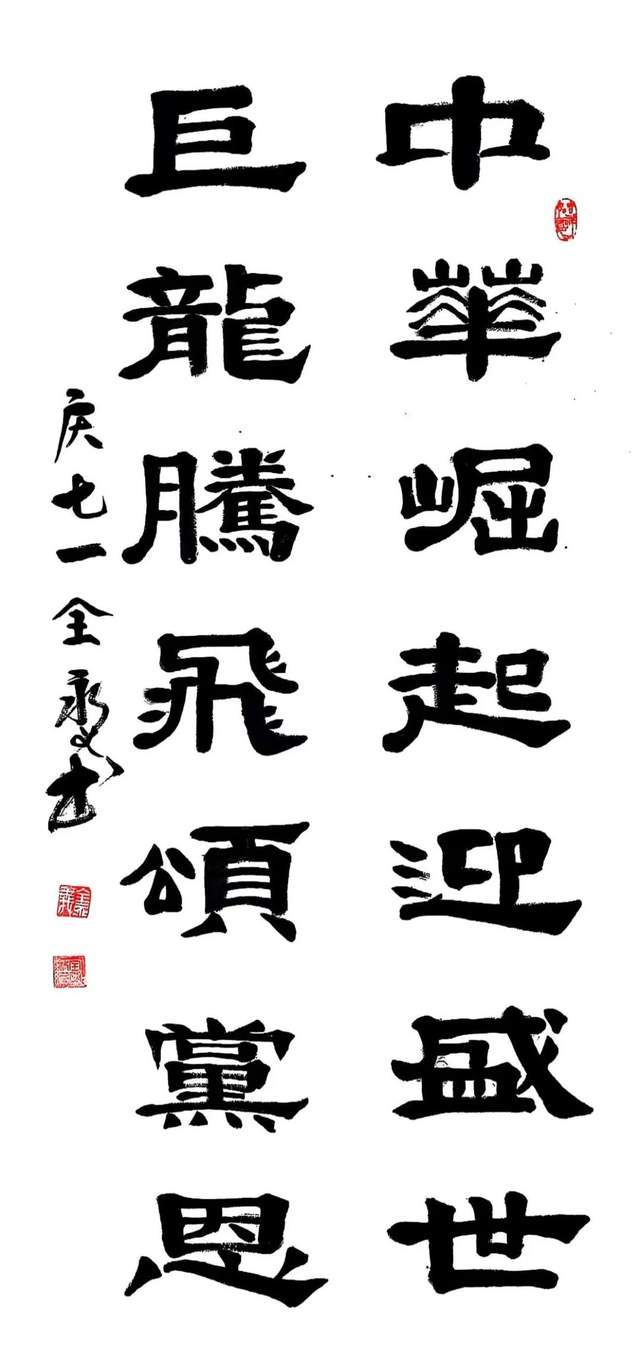 中華崛起迎盛世
巨龍騰飛頌黨恩
庆七一 全永义书